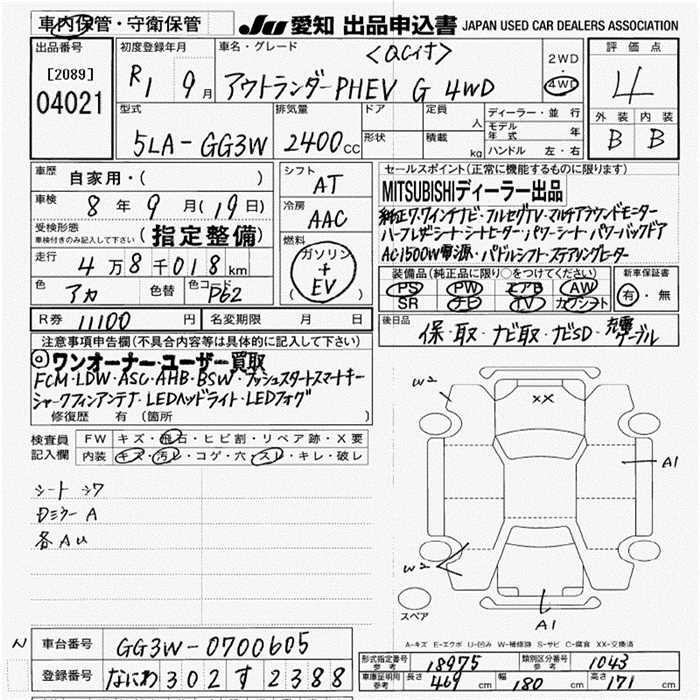 車内保管・守衛保管 JU 愛知 出品申込書 JAPAN USED CAR DEALERS ASSOCIATION
出品番号 初度登録年月 車名・グレード <QCイナ> 2WD 評価点
[2089] R1 9月 アウトランダーPHEV G 4WD 4WD 4
04021 型式 排気量 ドア 定員 人 ディーラー・並行 外装 内装
5LA-GG3W 2400cc 形状 積載 kg モデル年式 年 B B
ハンドル 左・右
車歴 自家用・( ) シフト AT セールスポイント(正常に機能するものに限ります)
車検 8年9月(19日) 冷房 AAC MITSUBISHIディーラー出品
受検形態 車検付きのみ記入して下さい (指定整備) 燃料 純正7.7インチナビ・フルセグTV・マルチアラウンドモニター
走行 4万8千018km (ガソリン+EV) ハーフレザーシート・シートヒーター・パワーシート・パワーバックドア
AC1500W電源・パドルシフト・ステアリングヒーター
色 アカ 色替 色コード P62 装備品(純正品に限り○をつけてください) 新車保証書
PS PW エアB AW 有・無
SR ナビ TV カワシート
R券 11100円 名変期限 月 日 後日品 保・取・ナビ取・ナビSD・充電ケーブル
注意事項申告欄(不具合内容等は具体的に記入して下さい)
◎ワンオーナー・ユーザー買取
FCM・LDW・ASC・AHB・BSW・プッシュスタートスマートキー
シャークフィンアンテナ・LEDヘッドライト・LEDフォグ
修復歴 有(箇所
検査員記入欄 FW キズ・飛石・ヒビ割・リペア跡・X要
内装 キズ・汚レ・コゲ・穴・スレ・キレ・破レ
シート シワ
Dミラー A
各AU
W2 XX
A1
W2
スペア A1
A-キズ E-エクボ U-凹み W-補修跡 S-サビ C-腐食 XX-交換済
N 車台番号 GG3W-0700605
登録番号 なにわ 302 す 2388
形式指定番号 参考 18975 類別区分番号 参考 1043
車庫証明用 参考 長さ 469cm 幅 180cm 高さ 171cm